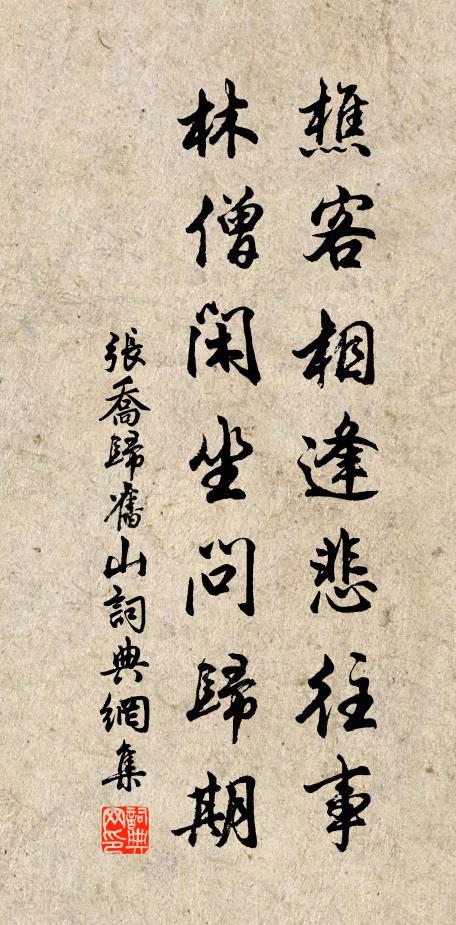 樵客相逢悲往事
林僧閑坐問歸期
張喬歸舊山詞典網集
詞典
网印